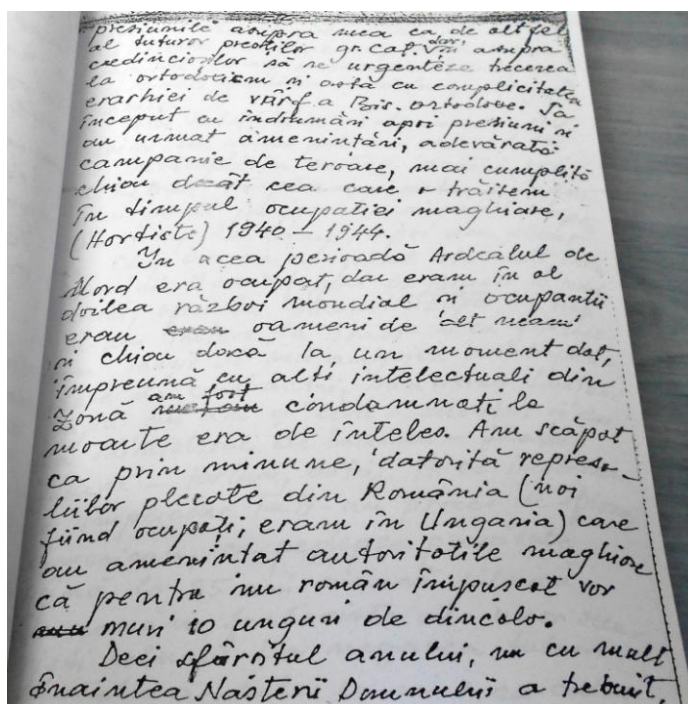 presiunile asupra mea ca de alt fel
al tuturor preoților gr. cat. dar și asupra
credincioșilor să se urgenteze trecerea
la ortodoxism și asta cu complicitatea
erarhiei de vârf a Bis. ortodoxe. Sa
început cu îndrumări apoi presiuni și
au urmat amenințări, adevărată
campanie de teroare, mai cumplită
chiar decât cea care o trăitem
în timpul ocupației maghiare,
(Hortiste) 1940 – 1944.
In acea perioadă Ardealul de
Nord era ocupat, dar eram în al
doilea război mondial și ocupanții
erau oameni de 'alt neam'
și chiar dacă la un moment dat,
împreună cu alți intelectuali din
Zonă am fost condamnați la
moarte era de înțeles. Am scăpat
ca prin minune, datorită represa-
liilor plecate din România (noi
fiind ocupați, eram în Ungaria) care
au amenințat autoritățile maghiare
că pentru un român împușcat vor
muri 10 unguri de dincolo.
Deci sfârșitul anului, nu cu mult
înaintea Nașterii Domnului a trebuit,